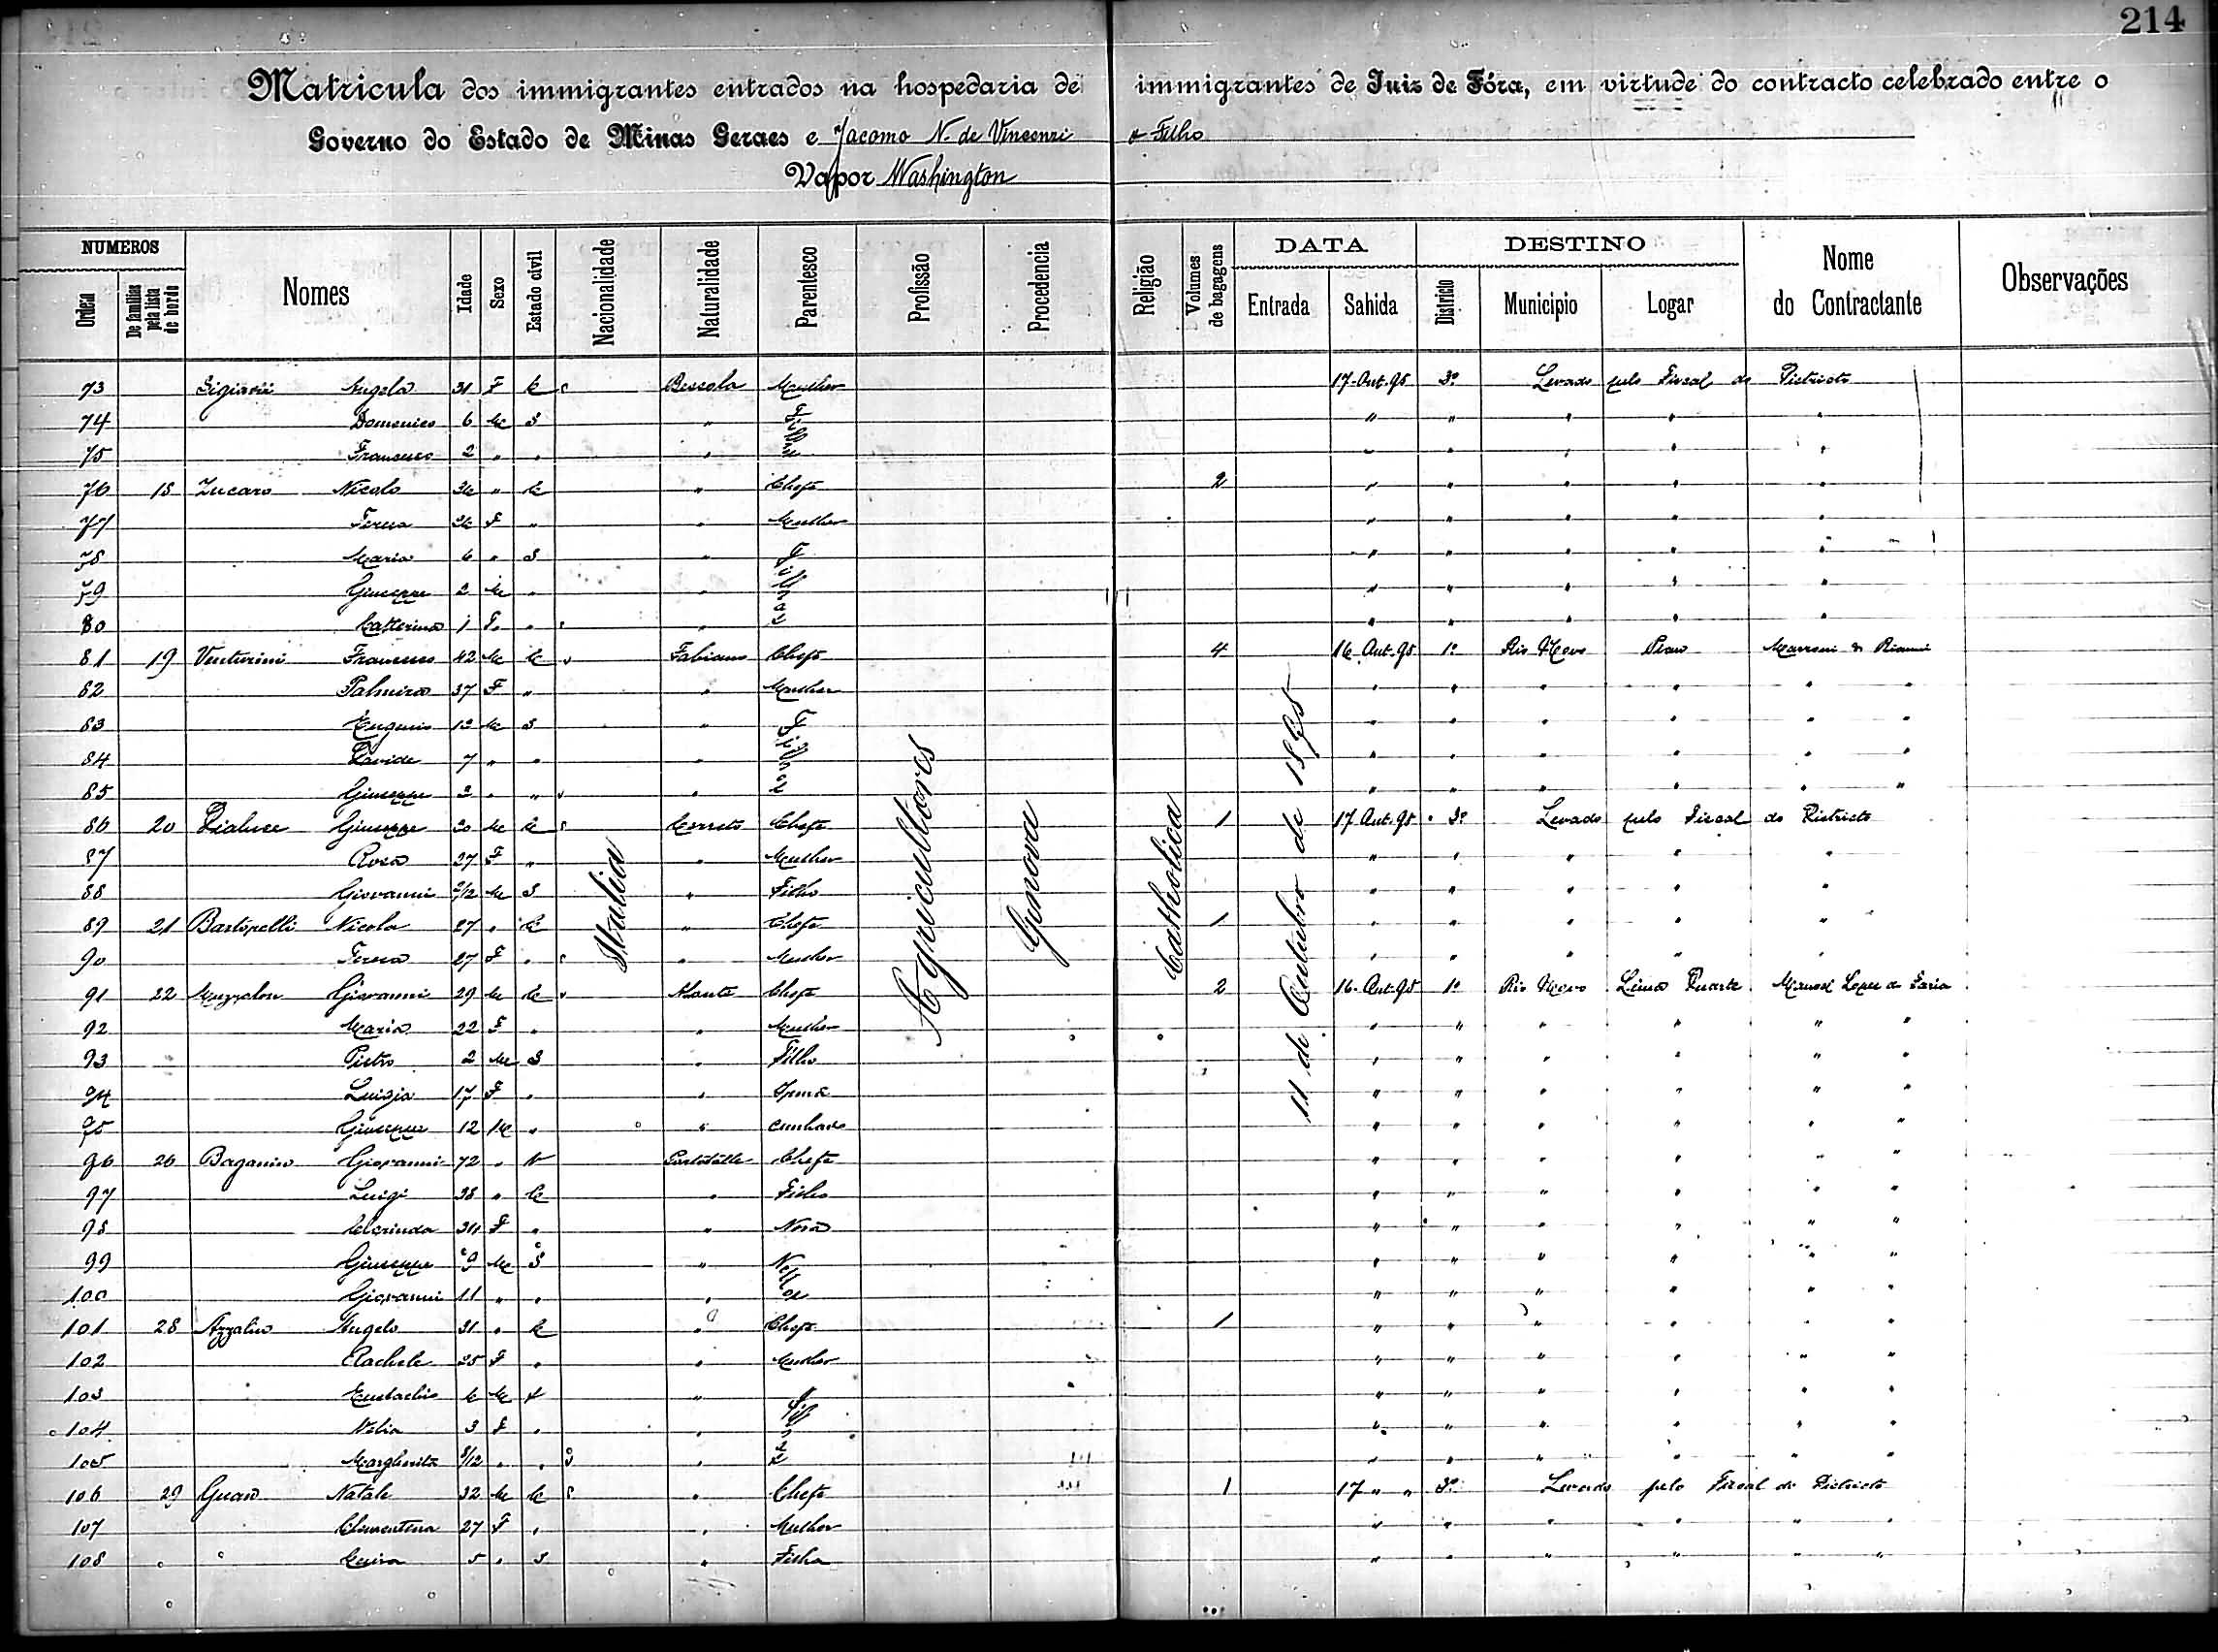 214
Matricula dos immigrantes entrados na hospedaria de immigrantes de Juiz de Fóra, em virtude do contracto celebrado entre o
Governo do Estado de Minas Geraes e Jacomo N. de Vincenzi & Filho
Vapor Washington
NUMEROS DATA DESTINO
Ordem De familias pela lista de bordo Nomes Idade Sexo Estado civil Nacionalidade Naturalidade Parentesco Profissão Procedencia Religião Volumes de bagagens Entrada Sahida Districto Municipio Logar Nome do Contractante Observações
Italia Agricultores Genova Catholica 11 de Outubro de 1895
73 Angela 31 F C Mulher 17-Out-95 3º Levado pelo Fiscal do Districto
74 Domenico 6 M S " " " " " "
75 Francesco 2 " " " " " " " "
76 18 Zucaro Nicolo " C " Chefe 2 " " " " "
77 Teresa F " " Mulher " " " " "
78 Maria 6 " S " " " " " "
79 Giuseppe 2 M " " " " " " "
80 Catterina 1 F " " " " " " "
81 19 Venturini Francesco 42 M C Fabiano Chefe 4 16 Out-95 1º Rio Novo Piau
82 Palmira 37 F " " Mulher " " " " " "
83 Eugenio 12 M S " " " " " " "
84 Davide 7 " " " " " " " " "
85 Giuseppe 2 " " " " " " " " "
86 20 Dialuce Giuseppe M C Cerreto Chefe 1 17 Out-95 3º Levado pelo Fiscal do Districto
87 Rosa 27 F " " Mulher " " " " "
88 Giovanni M S " Filho " " " " "
89 21 Nicola 27 " C " Chefe 1 " " " " "
90 Teresa 27 F " " Mulher " " " " "
91 22 Giovanni 29 M C Chefe 2 16-Out-95 1º Rio Novo Lima Duarte Manoel Lopes de Faria
92 Maria 22 F " " Mulher " " " " " "
93 Pietro 2 M S " Filho " " " " " "
94 Luigia 17 F " " Irmã " " " " " "
95 Giuseppe 12 M " " Cunhado " " " " " "
96 26 Giovanni 72 " V Chefe " " " " " "
97 Luigi 38 " C " Filho " " " " " "
98 Clorinda F " " Nora " " " " " "
99 Giuseppe 9 M S " Netos " " " " " "
100 Giovanni 11 " " " " " " " " "
101 28 Azzalin Angelo 31 " C " Chefe 1 " " " " " "
102 Rachele 25 F " " Mulher " " " " " "
103 Eustachio M " " " " " " "
104 3 F " " " " " " " "
105 Margherita " " " " " " " " "
106 29 Natale 32 M C " Chefe 1 17 " " 3º Levado pelo Fiscal do Districto
107 Clementina 27 F " " Mulher " " " " " "
108 5 " S " Filha " " " " " "